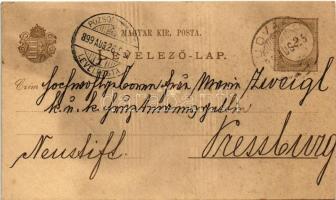 MAGYAR KIR. POSTA.
LEVELEZŐ-LAP.
POZSONY
899 AUG 26
Czim
Hochwohlgeboren Frau Marie Zweigl
k. u. k. Hauptmannsgattin
Neustift
Pressburg